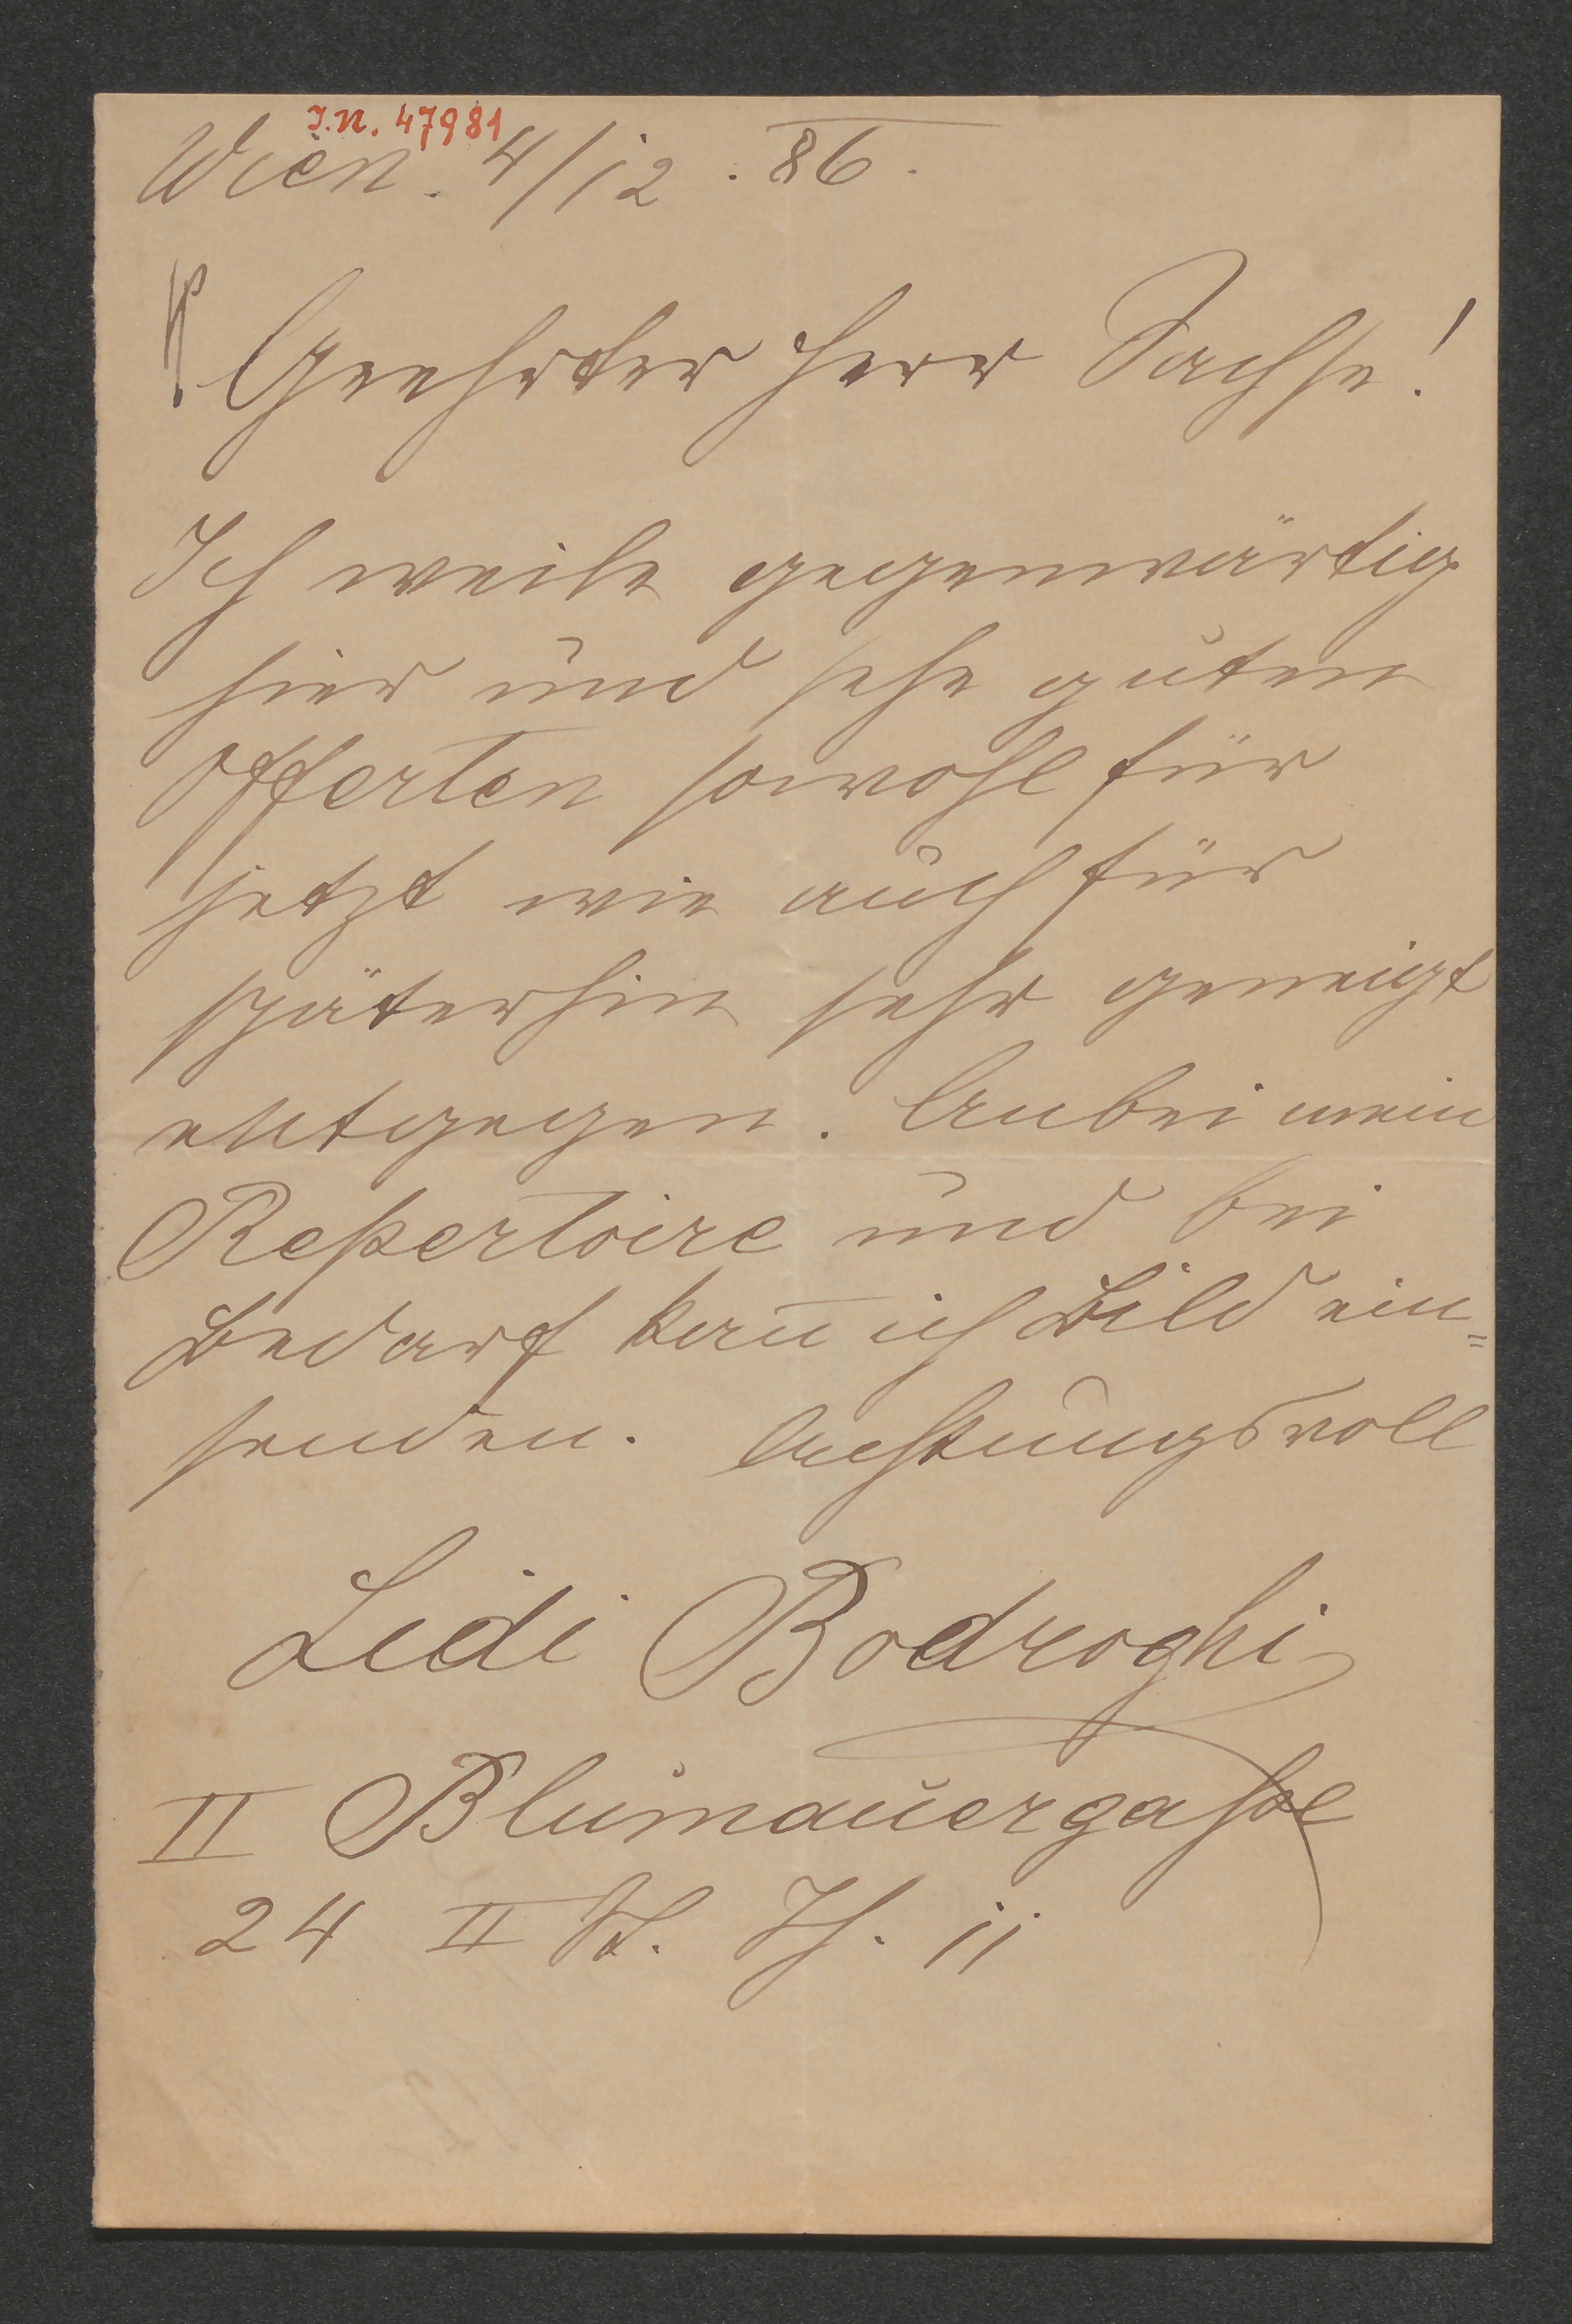 I.N. 47981
Wien. 4/12. 86.
Geehrter Herr Sachse!
Ich weile gegenwärtig
hier und sehe guten
Offerten sowohl für
jetzt wie auch für
späterhin sehr geneigt
entgegen. Anbei mein
Repertoire und bei
Bedarf kan̅ ich Bild ein=
senden. Achtungsvoll
Lidi Bodroghi
II Blumauergasse
24 II St. Th. 11